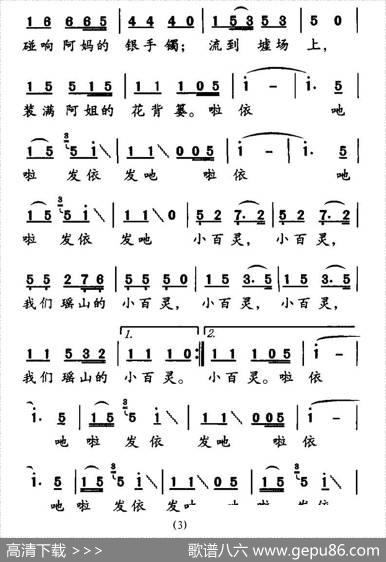 1 6 6 6 5 | 4 4 4 0 | 1 5 3 5 3 | 5 0
碰响阿妈的 银手镯; 流到 墟场 上,
1 5 5 1 5 | 1 1 1 0 5 | i - | i· 5
装满 阿姐的 花背篓。啦 依 吔
1 5 5 i | 1 1 0 0 5 | i - | i· 5
啦 发依 发吔 啦 依 吔
1 5 5 i | 1 1 0 | 5 2 7·2 | 5 2 7·2
啦 发依 发吔 小百灵, 小百灵,
5 5 2 7 6 | 5 5 5 0 | 1 5 3·5 | 1 5 3·5
我们瑶山的 小百灵, 小百灵, 小百灵,
1.
2.
1 1 5 3 2 | 1 1 1 0 :| 1 1 1 0 5 | i -
我们瑶山的 小百灵。 小百灵。啦 依
i· 5 | 1 5 5 i | 1 1 | 0 0 5 | i -
吔 啦 发依 发吔 啦 依
i· 5 | 1 5 5 i | 1 1 | 0 1 5 | 5 i
吔 啦 发依 发 啦 发依
(3)
高清下载 >>>
歌谱八六 www.gepu86.com